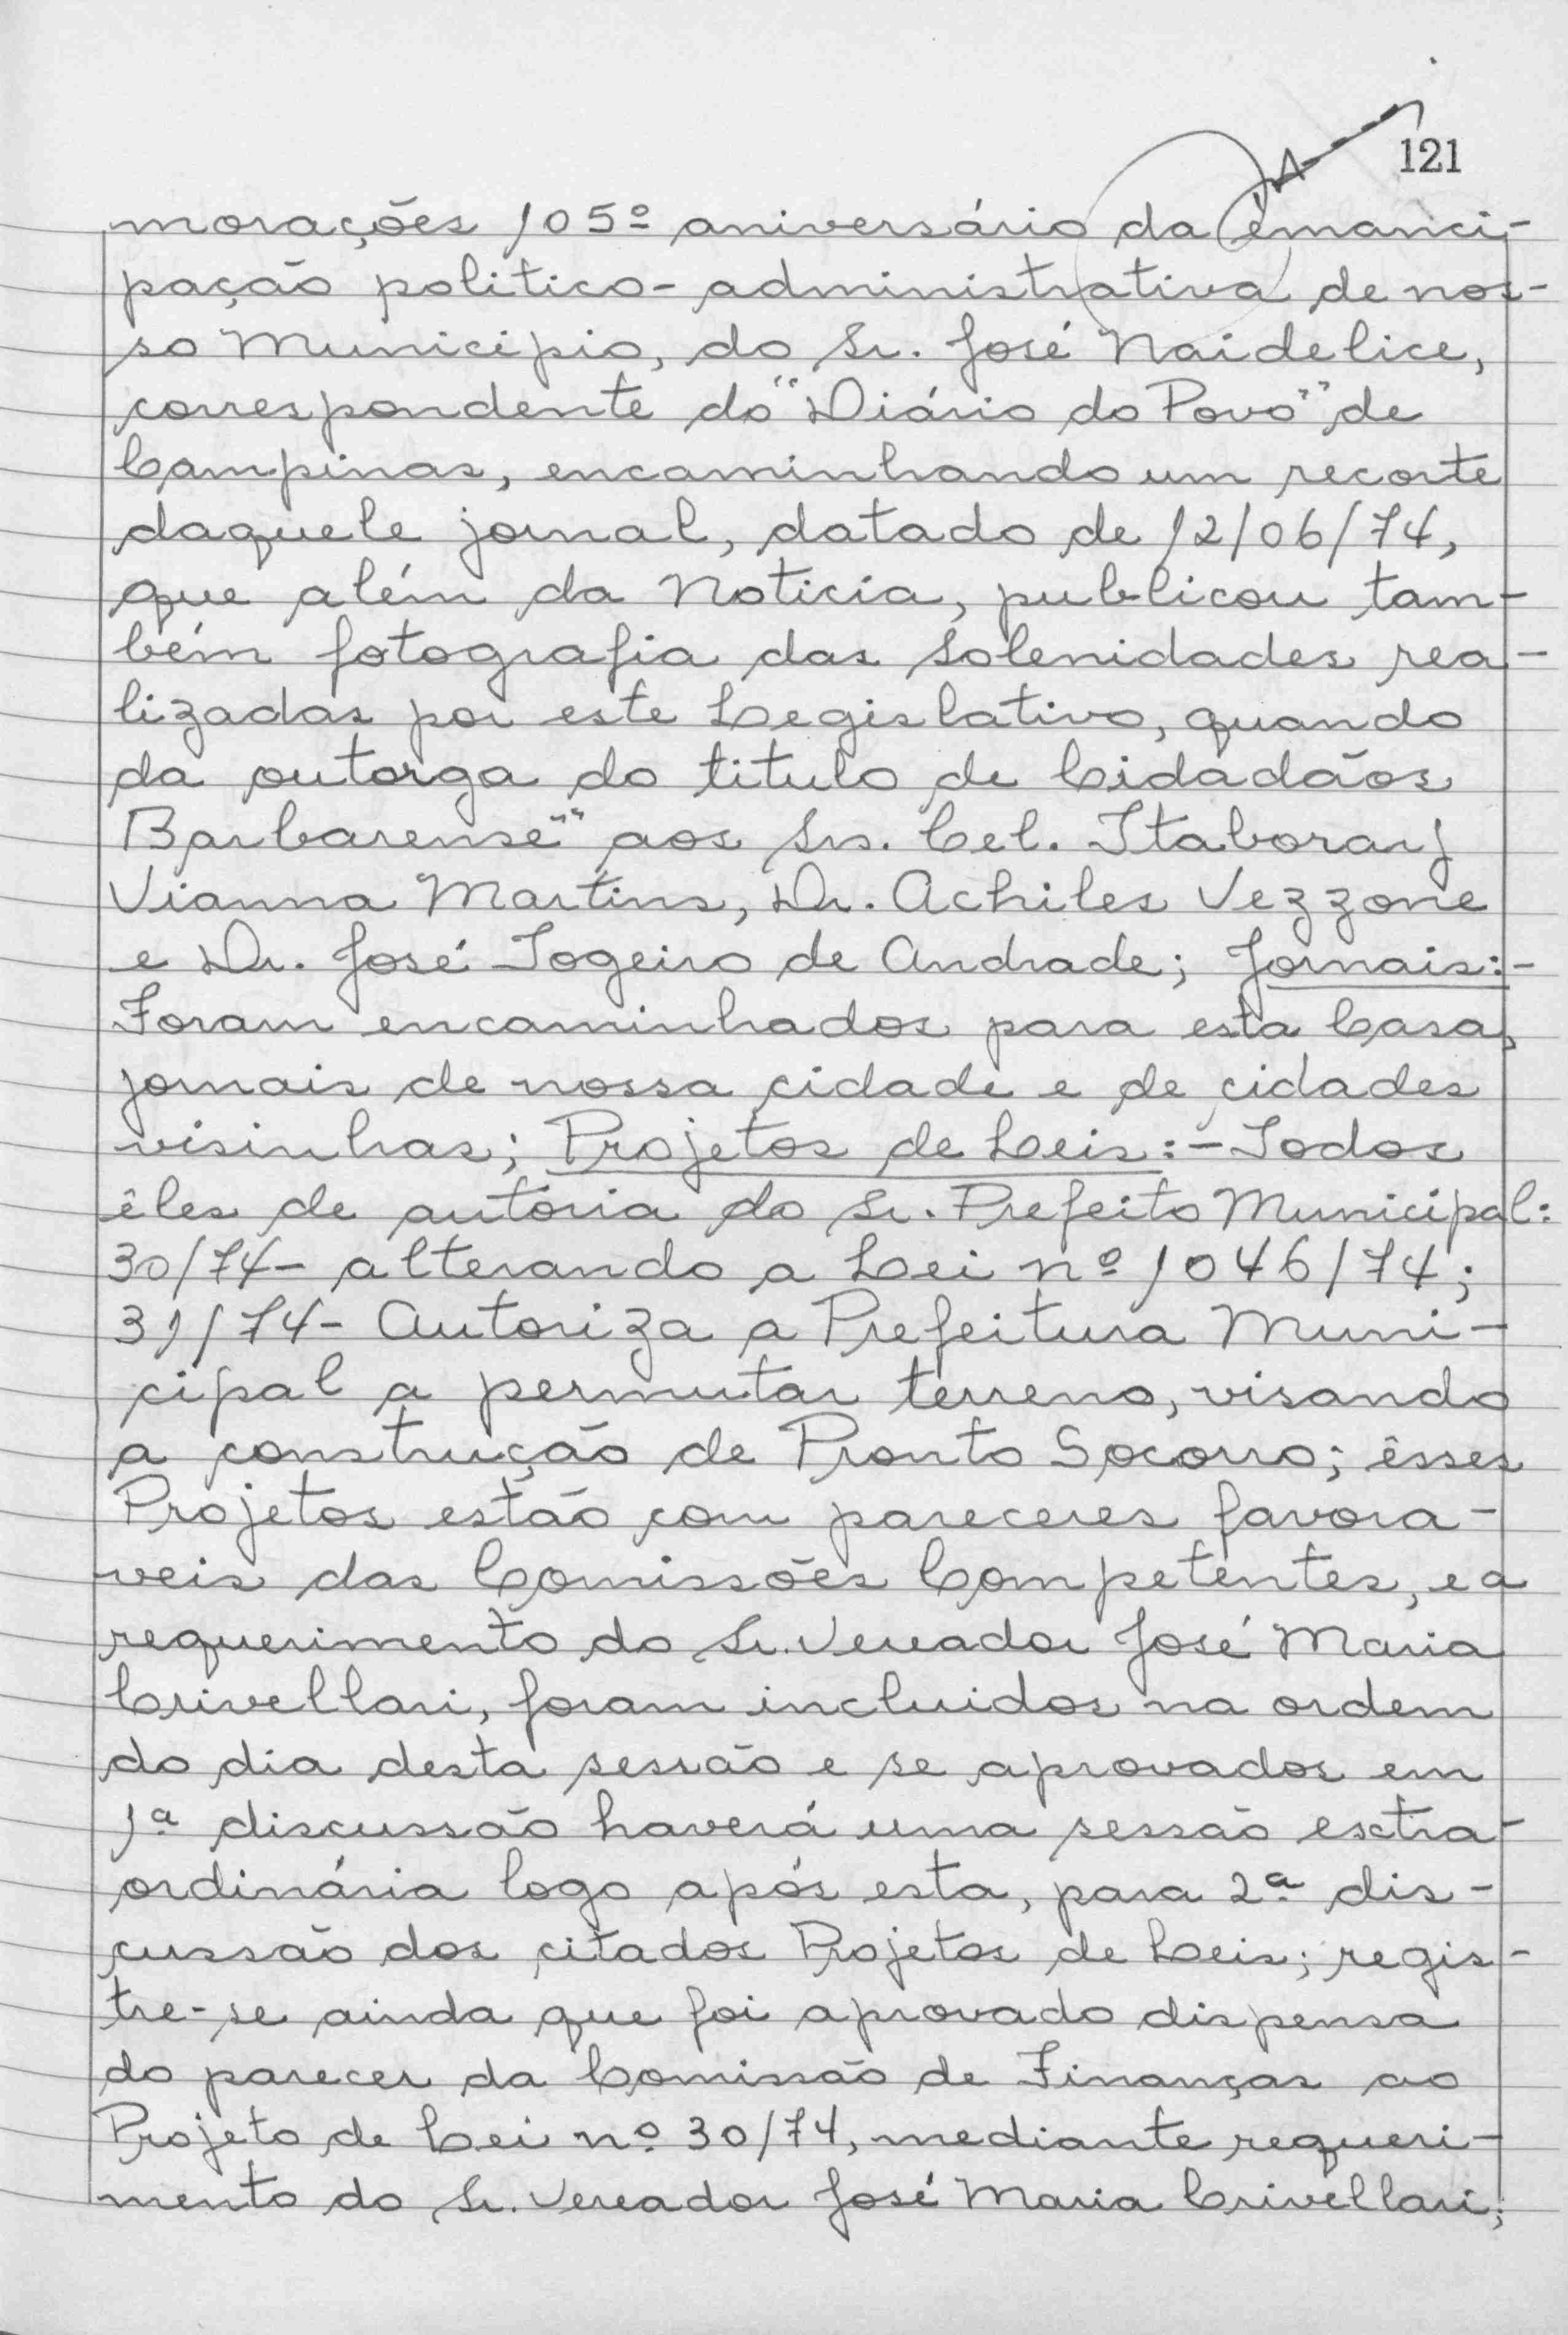 121
morações 105º aniversário da emanci-
pação politico-administrativa de nos-
so Municipio, do Sr. José Naidelice,
correspondente do "Diário do Povo" de
Campinas, encaminhando um recorte
daquele jornal, datado de 12/06/74,
que além da Noticia, publicou tam-
bém fotografia das Solenidades rea-
lizadas por este Legislativo, quando
da outorga do titulo de Cidadãos
Barbarense" aos Srs. Cel. Itaboray
Vianna Martins, Dr. Achiles Vezzone
e Dr. José Togeiro de Andrade; Jornais:-
Foram encaminhados para esta Casa,
jornais de nossa cidade e de cidades
visinhas; Projetos de Leis:- Todos
êles de autoria do Sr. Prefeito Municipal:
30/74- alterando a Lei nº 1046/74;
31/74- Autoriza a Prefeitura Muni-
cipal a permutar terreno, visando
a construção de Pronto Socorro; êsses
Projetos estão com pareceres favora-
veis das Comissões Competentes, e a
requerimento do Sr. Vereador José Maria
Crivellari, foram incluidos na ordem
do dia desta sessão e se aprovados em
1ª discussão haverá uma sessão extra-
ordinária logo após esta, para 2ª dis-
cussão dos citados Projetos de Leis; regis-
tre-se ainda que foi aprovado dispensa
do parecer da Comissão de Finanças ao
Projeto de Lei nº 30/74, mediante requeri-
mento do Sr. Vereador José Maria Crivellari;